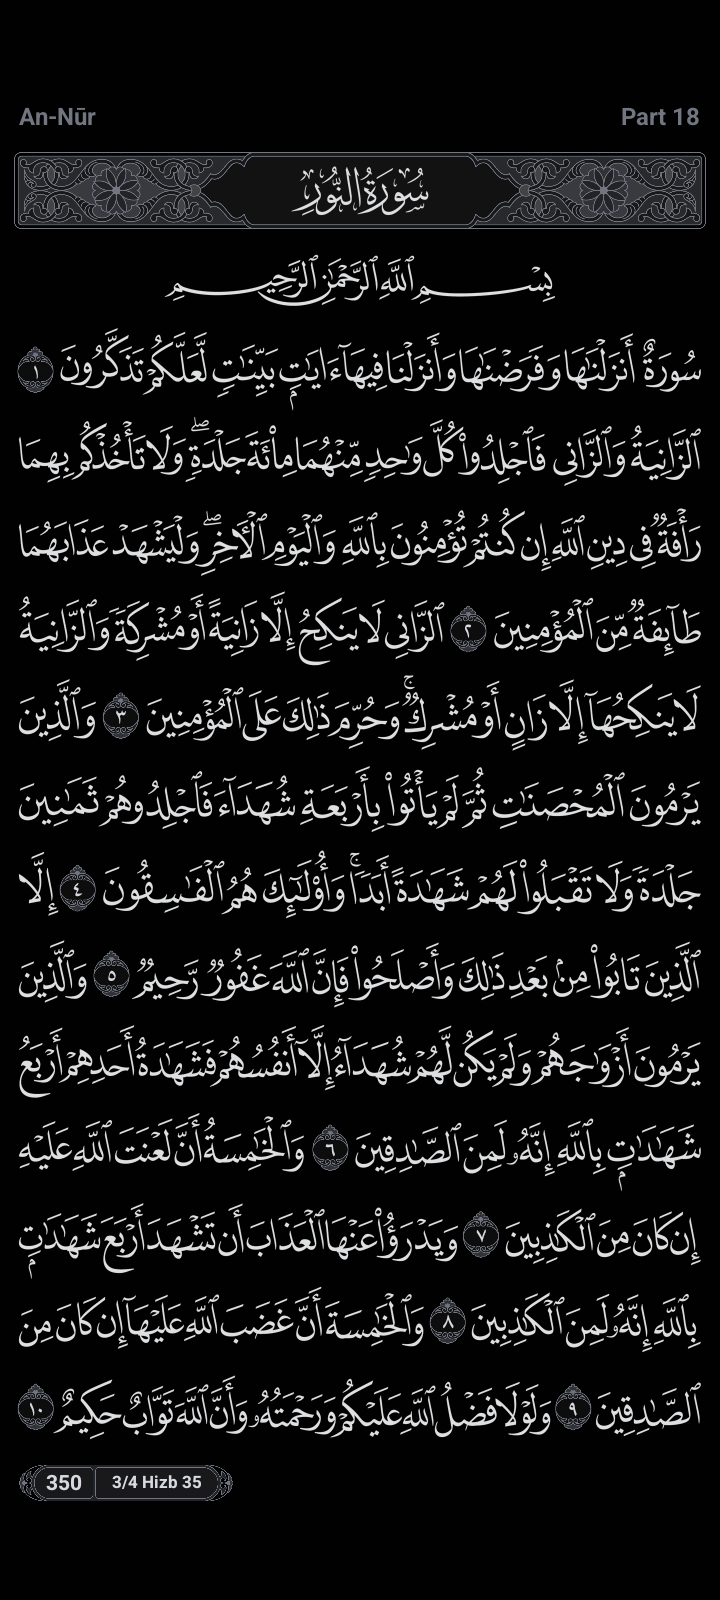 An-Nūr
Part 18
سُورَةُ النُّورِ
بِسْمِ ٱللَّهِ ٱلرَّحْمَٰنِ ٱلرَّحِيمِ
سُورَةٌ أَنزَلْنَٰهَا وَفَرَضْنَٰهَا وَأَنزَلْنَا فِيهَآ ءَايَٰتٍۭ بَيِّنَٰتٍ لَّعَلَّكُمْ تَذَكَّرُونَ ١
ٱلزَّانِيَةُ وَٱلزَّانِى فَٱجْلِدُوا۟ كُلَّ وَٰحِدٍ مِّنْهُمَا مِا۟ئَةَ جَلْدَةٍ ۖ وَلَا تَأْخُذْكُم بِهِمَا
رَأْفَةٌ فِى دِينِ ٱللَّهِ إِن كُنتُمْ تُؤْمِنُونَ بِٱللَّهِ وَٱلْيَوْمِ ٱلْءَاخِرِ ۖ وَلْيَشْهَدْ عَذَابَهُمَا
طَآئِفَةٌ مِّنَ ٱلْمُؤْمِنِينَ ٢ ٱلزَّانِى لَا يَنكِحُ إِلَّا زَانِيَةً أَوْ مُشْرِكَةً وَٱلزَّانِيَةُ
لَا يَنكِحُهَآ إِلَّا زَانٍ أَوْ مُشْرِكٌ ۚ وَحُرِّمَ ذَٰلِكَ عَلَى ٱلْمُؤْمِنِينَ ٣ وَٱلَّذِينَ
يَرْمُونَ ٱلْمُحْصَنَٰتِ ثُمَّ لَمْ يَأْتُوا۟ بِأَرْبَعَةِ شُهَدَآءَ فَٱجْلِدُوهُمْ ثَمَٰنِينَ
جَلْدَةً وَلَا تَقْبَلُوا۟ لَهُمْ شَهَٰدَةً أَبَدًا ۚ وَأُو۟لَٰٓئِكَ هُمُ ٱلْفَٰسِقُونَ ٤ إِلَّا
ٱلَّذِينَ تَابُوا۟ مِنۢ بَعْدِ ذَٰلِكَ وَأَصْلَحُوا۟ فَإِنَّ ٱللَّهَ غَفُورٌ رَّحِيمٌ ٥ وَٱلَّذِينَ
يَرْمُونَ أَزْوَٰجَهُمْ وَلَمْ يَكُن لَّهُمْ شُهَدَآءُ إِلَّآ أَنفُسُهُمْ فَشَهَٰدَةُ أَحَدِهِمْ أَرْبَعُ
شَهَٰدَٰتٍۭ بِٱللَّهِ إِنَّهُۥ لَمِنَ ٱلصَّٰدِقِينَ ٦ وَٱلْخَٰمِسَةُ أَنَّ لَعْنَتَ ٱللَّهِ عَلَيْهِ
إِن كَانَ مِنَ ٱلْكَٰذِبِينَ ٧ وَيَدْرَؤُا۟ عَنْهَا ٱلْعَذَابَ أَن تَشْهَدَ أَرْبَعَ شَهَٰدَٰتٍۭ
بِٱللَّهِ إِنَّهُۥ لَمِنَ ٱلْكَٰذِبِينَ ٨ وَٱلْخَٰمِسَةَ أَنَّ غَضَبَ ٱللَّهِ عَلَيْهَآ إِن كَانَ مِنَ
ٱلصَّٰدِقِينَ ٩ وَلَوْلَا فَضْلُ ٱللَّهِ عَلَيْكُمْ وَرَحْمَتُهُۥ وَأَنَّ ٱللَّهَ تَوَّابٌ حَكِيمٌ ١٠
350 3/4 Hizb 35